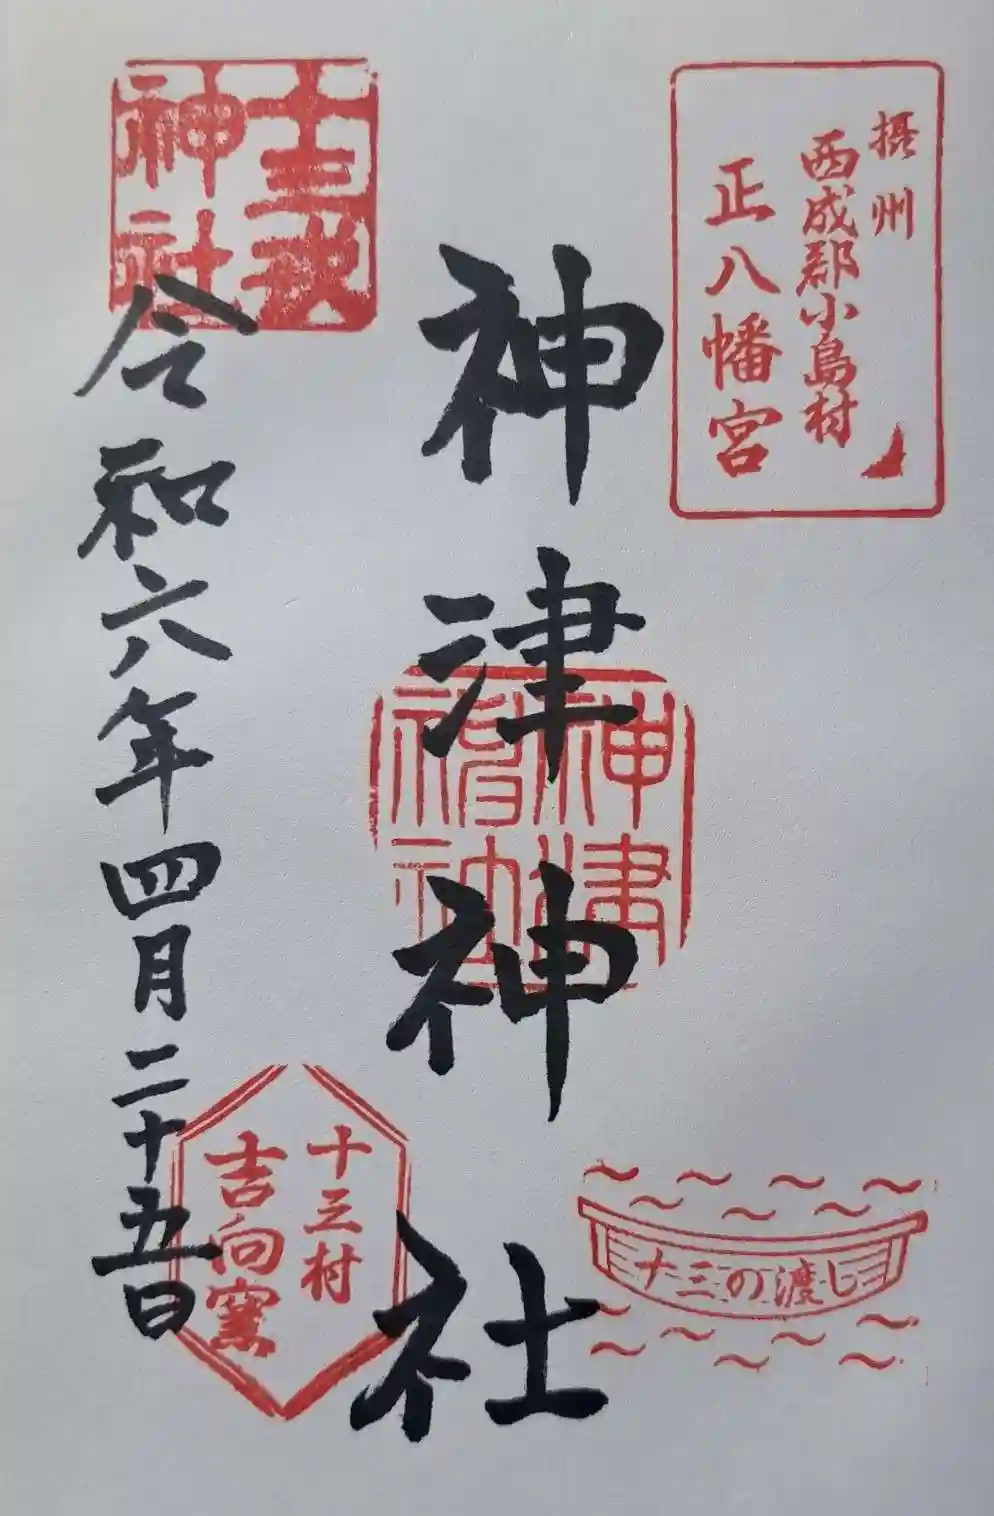 摂州
西成郡小島村
正八幡宮
神津神社
神津
神社
十三戎
神社
令和六年四月二十五日
十三村
吉向窯
十三の渡し